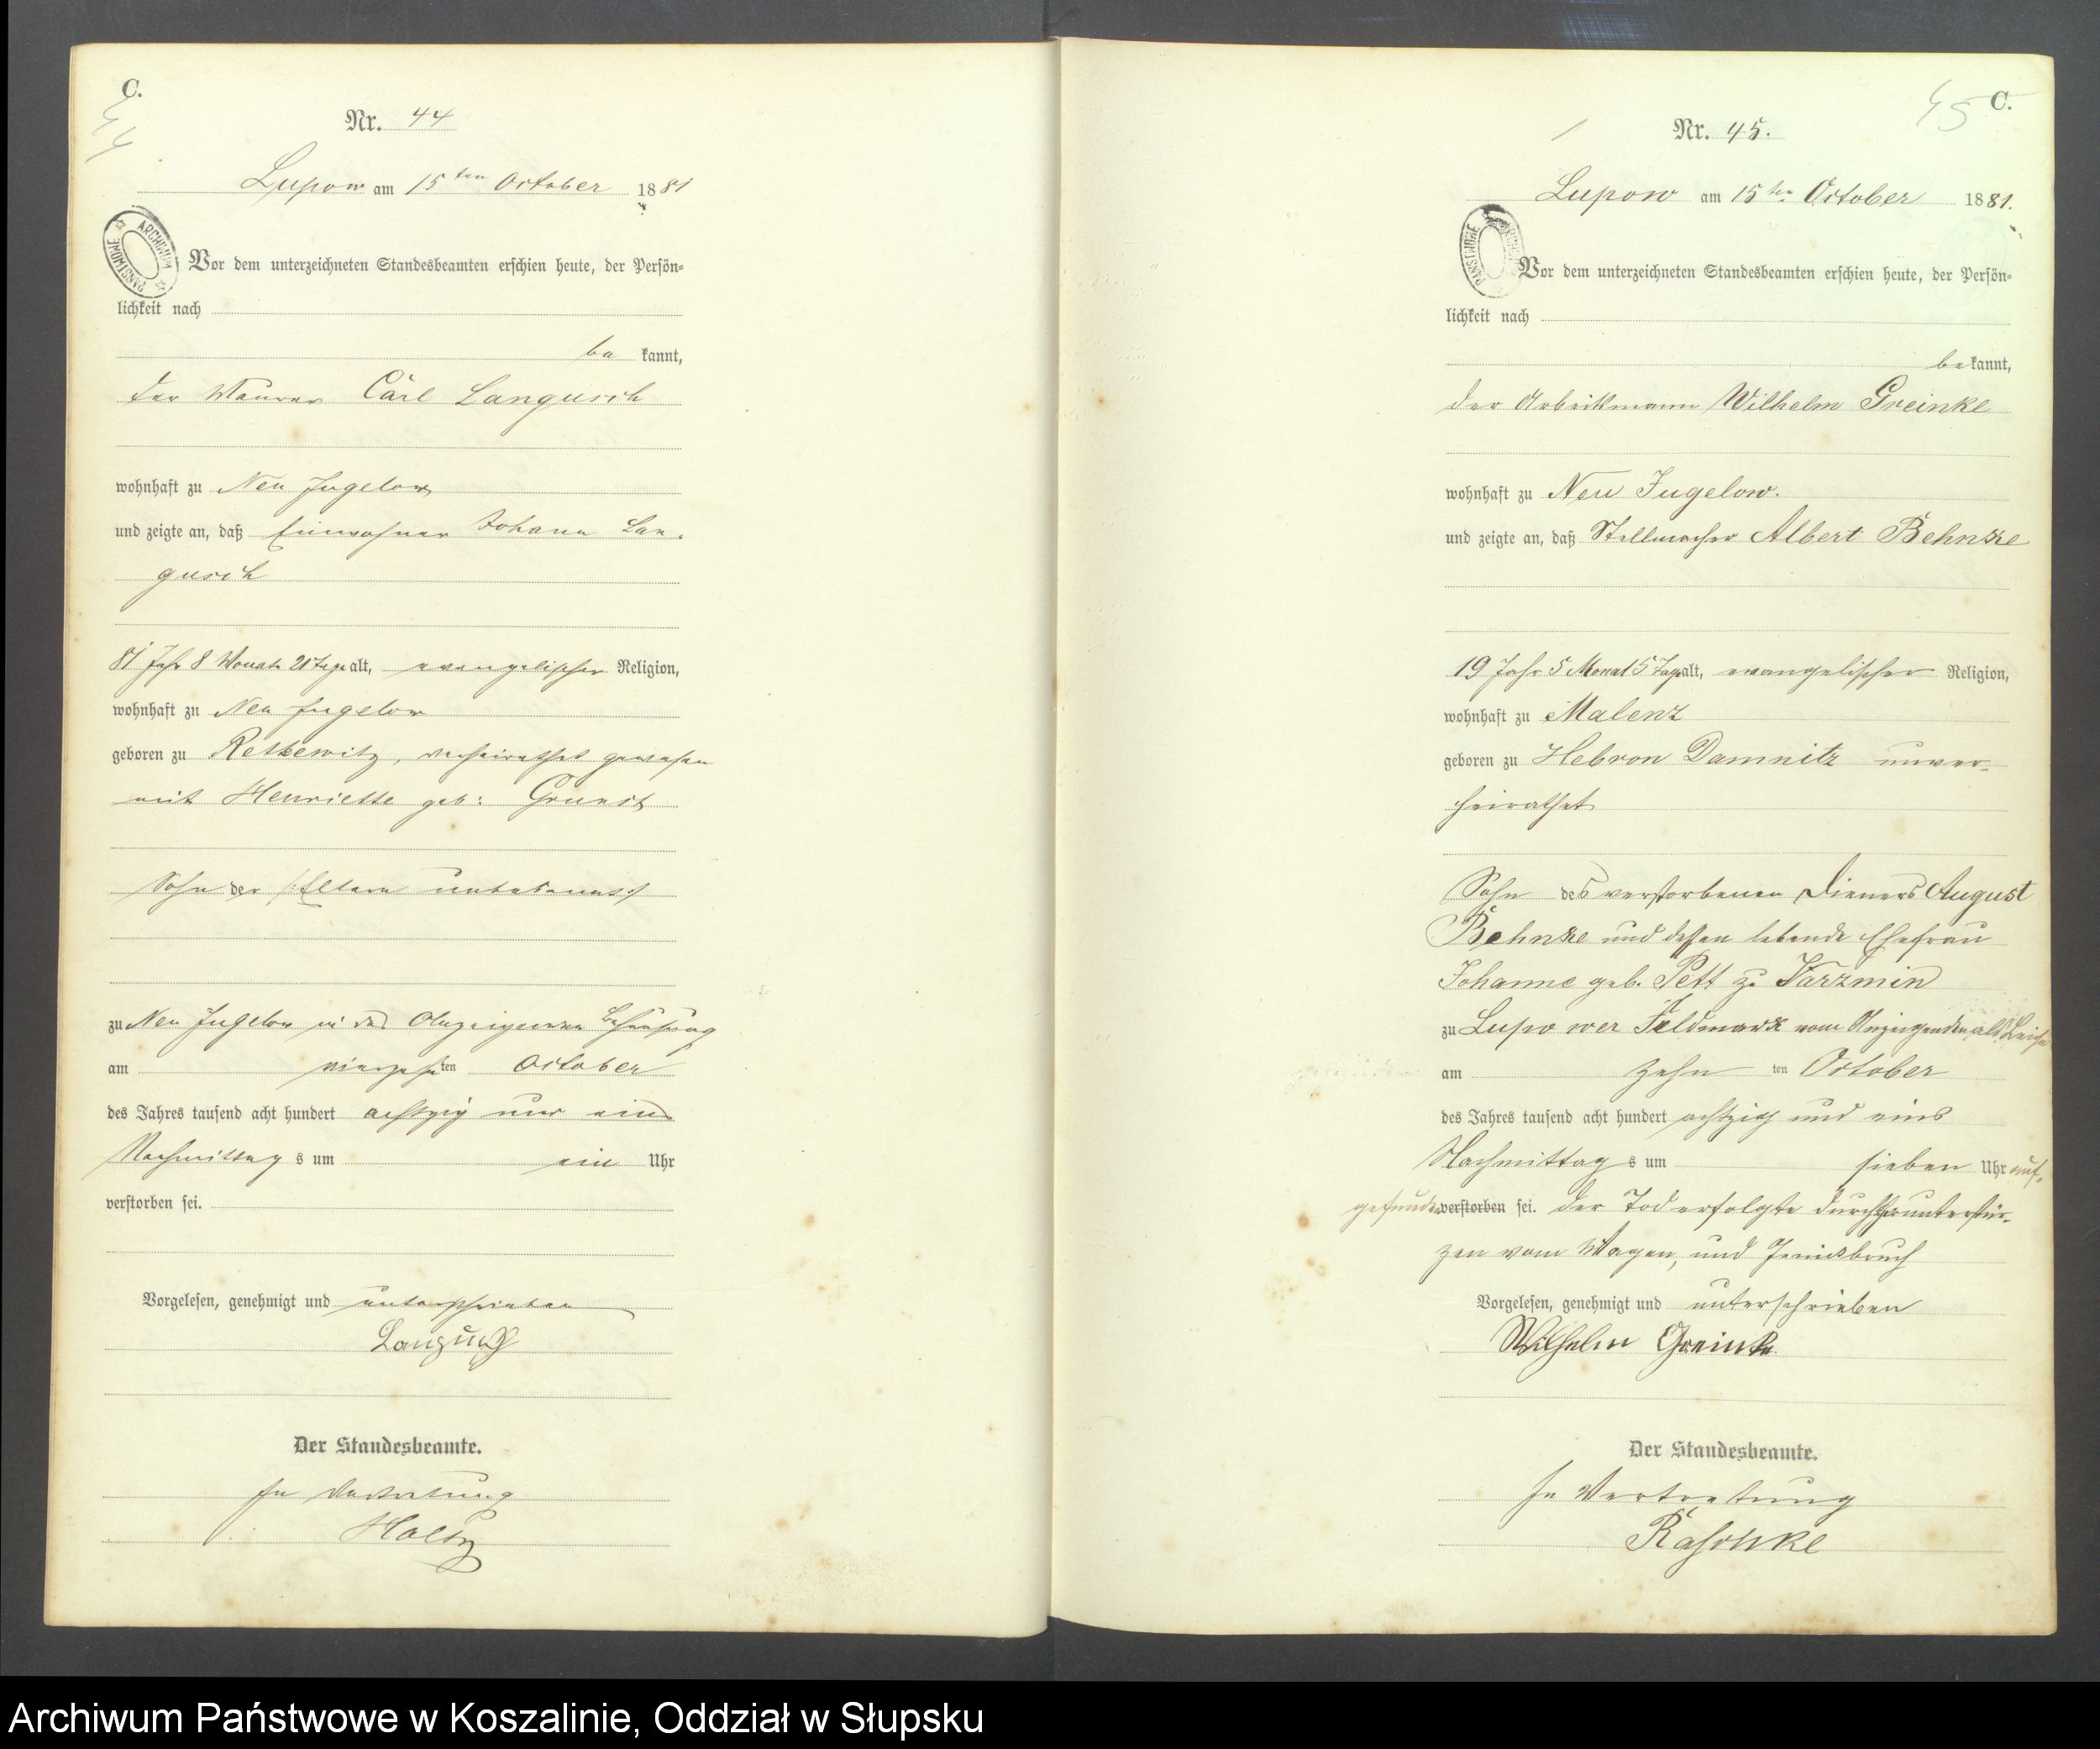 C.
44
Nr. 44
Lupow am 15ten October 1881
ARCHIWUM PAŃSTWOWE
Vor dem unterzeichneten Standesbeamten erschien heute, der Persön-
lichkeit nach
be kannt,
der Maurer Carl Langusch
wohnhaft zu Neu Jugelow
und zeigte an, daß Einwohner Johann Lan-
gusch
81 Jahr 8 Monate 21 Tage alt, evangelischer Religion,
wohnhaft zu Neu Jugelow
geboren zu Retkewitz, verheirathet gewesen
mit Henriette geb: Grunst
Sohn der Eltern unbekannt
zu Neu Jugelow in des Anzeigenden Behausung
am vierzehnten October
des Jahres tausend acht hundert achtzig und eins
Nachmittags um ein Uhr
verstorben sei.
Vorgelesen, genehmigt und unterschrieben
Langusch
Der Standesbeamte.
In Vertretung
Holtz
45 C.
Nr. 45.
Lupow am 15ten October 1881.
ARCHIWUM PAŃSTWOWE
Vor dem unterzeichneten Standesbeamten erschien heute, der Persön-
lichkeit nach
bekannt,
der Arbeitsmann Wilhelm Greinke
wohnhaft zu Neu Jugelow.
und zeigte an, daß Stellmacher Albert Behnke
19 Jahr 5 Monat 5 Tage alt, evangelischer Religion,
wohnhaft zu Malenz
geboren zu Hebron Damnitz unver-
heirathet
Sohn des verstorbenen Dieners August
Behnke und dessen lebende Ehefrau
Johanne geb. Pett zu Varzmin
zu Lupower Feldmark vom Anzeigenden als Leiche
am zehn ten October
des Jahres tausend acht hundert achtzig und eins
Nachmittags um sieben Uhr auf-
gefunden verstorben sei. der Tod erfolgte durch Herunterstür-
zen vom Wagen, und Genickbruch
Vorgelesen, genehmigt und unterschrieben
Wilhelm Greinke
Der Standesbeamte.
In Vertretung
Raschke
Archiwum Państwowe w Koszalinie, Oddział w Słupsku